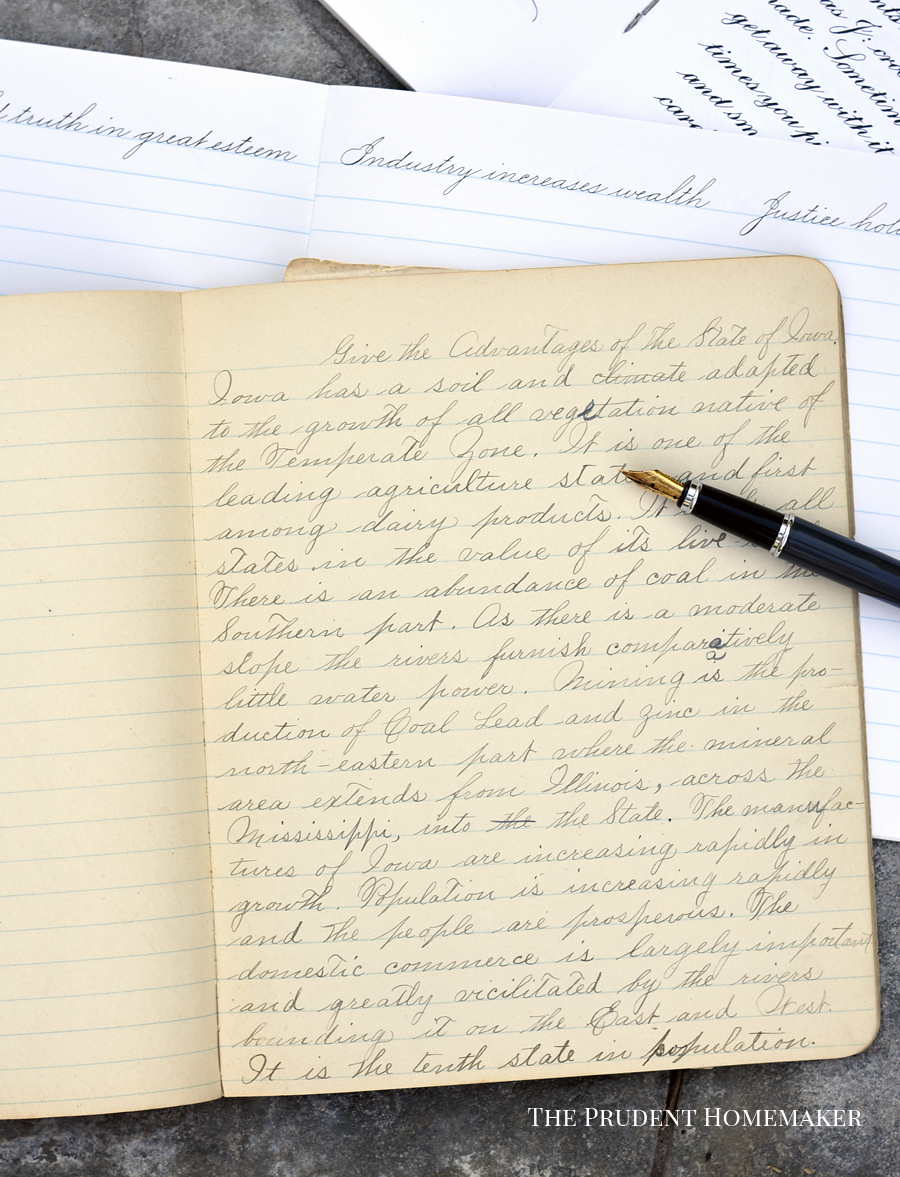 nts
as J: cro
made. Sometim
get away with it
times you pi
and sm
care
truth in great esteem
Industry increases wealth
Justice hol
Give the Advantages of the State of Iowa.
Iowa has a soil and climate adapted
to the growth of all vegetation native of
the Temperate Zone. It is one of the
leading agriculture state and first
among dairy products. It all
states in the value of its live-
There is an abundance of coal in the
Southern part. As there is a moderate
slope the rivers furnish comparatively
little water power. Mining is the pro-
duction of Coal Lead and zinc in the
north-eastern part where the mineral
area extends from Illinois, across the
Mississippi, into the the State. The manufac-
tures of Iowa are increasing rapidly in
growth. Population is increasing rapidly
and the people are prosperous. The
domestic commerce is largely important
and greatly vicilitated by the rivers
bounding it on the East and West.
It is the tenth state in population.
THE PRUDENT HOMEMAKER